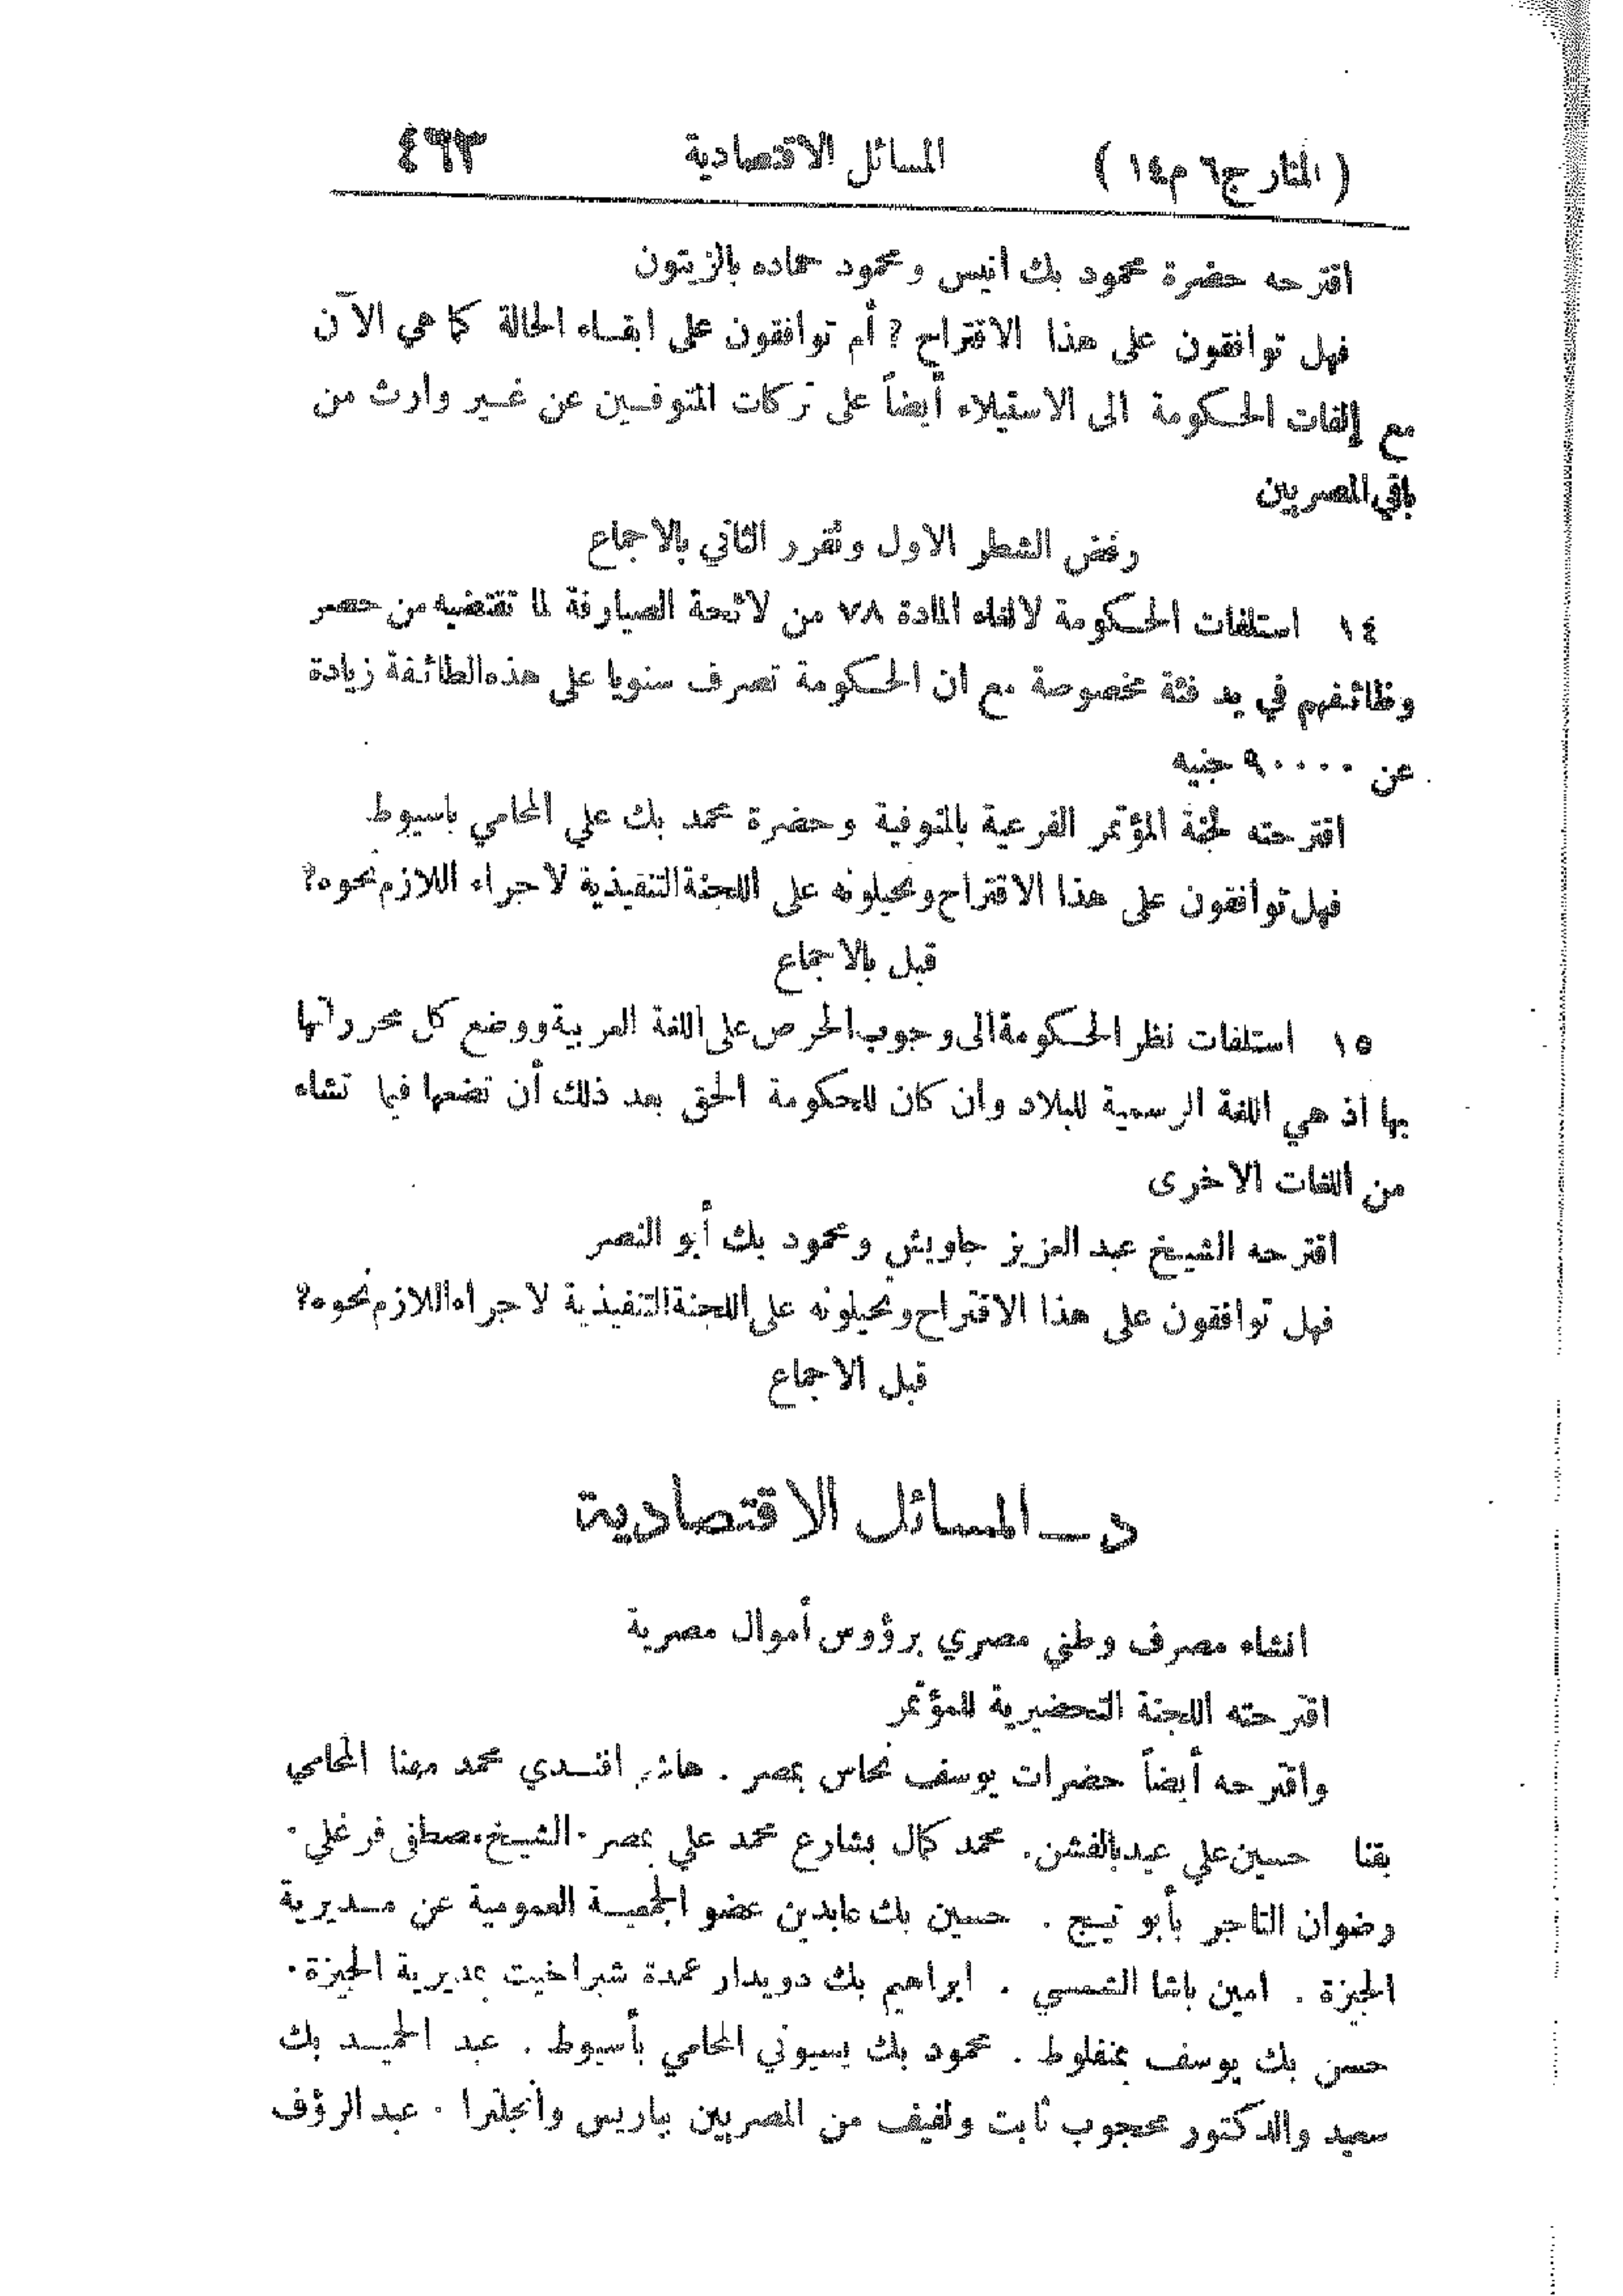 (المنار ج٦ م١٤) المسائل الاقتصادية ٤٦٣
اقترحه حضرة محمود بك انيس ومحمود حماده بالزيتون
فهل توافقون على هذا الاقتراح ? أم توافقون على ابقاء الحالة كما هي الآن
مع إلفات الحكومة الى الاستيلاء أيضاً على تركات المتوفين عن غير وارث من
باقي المصريين
رفض الشطر الاول وتقرر الثاني بالاجماع
١٤ استلفات الحكومة لالغاء المادة ٧٨ من لائحة الصيارفة لما تقتضيه من حصر
وظائفهم في يد فئة مخصوصة مع ان الحكومة تصرف سنويا على هذه الطائفة زيادة
عن ٩٠٠٠٠ جنيه
اقترحته لجنة المؤتمر الفرعية بالمنوفية وحضرة محمد بك علي المحامي باسيوط
فهل توافقون على هذا الاقتراح وتحيلونه على اللجنة التنفيذية لاجراء اللازم نحوه؟
قبل بالاجماع
١٥ استلفات نظر الحكومة الى وجوب الحرص على اللغة العربية ووضع كل محرراتها
بها اذ هي اللغة الرسمية للبلاد وان كان للحكومة الحق بعد ذلك أن تضعها فيما تشاء
من اللغات الاخرى
اقترحه الشيخ عبد العزيز جاويش ومحمود بك أبو النصر
فهل توافقون على هذا الاقتراح وتحيلونه على اللجنة التنفيذية لاجراء اللازم نحوه؟
قبل الاجماع
د ــ المسائل الاقتصادية
انشاء مصرف وطني مصري برؤوس أموال مصرية
اقترحته اللجنة التحضيرية للمؤتمر
واقترحه أيضاً حضرات يوسف نحاس بمصر . هاشم افندي محمد مهنا المحامي
بقنا حسين علي عيد بالفشن . محمد كمال بشارع محمد علي بمصر . الشيخ مصطفى فرغلي .
رضوان التاجر بأبو تيج . حسين بك عابدين عضو الجمعية العمومية عن مديرية
الجيزة . امين باشا الشمسي . ابراهيم بك دويدار عمدة شبراخيت بمديرية الجيزة .
حسن بك يوسف بمنفلوط . محمود بك بسيوني المحامي بأسيوط . عبد الحميد بك
سعيد والدكتور محجوب ثابت ولفيف من المصريين بباريس وأنجلترا . عبد الرؤف